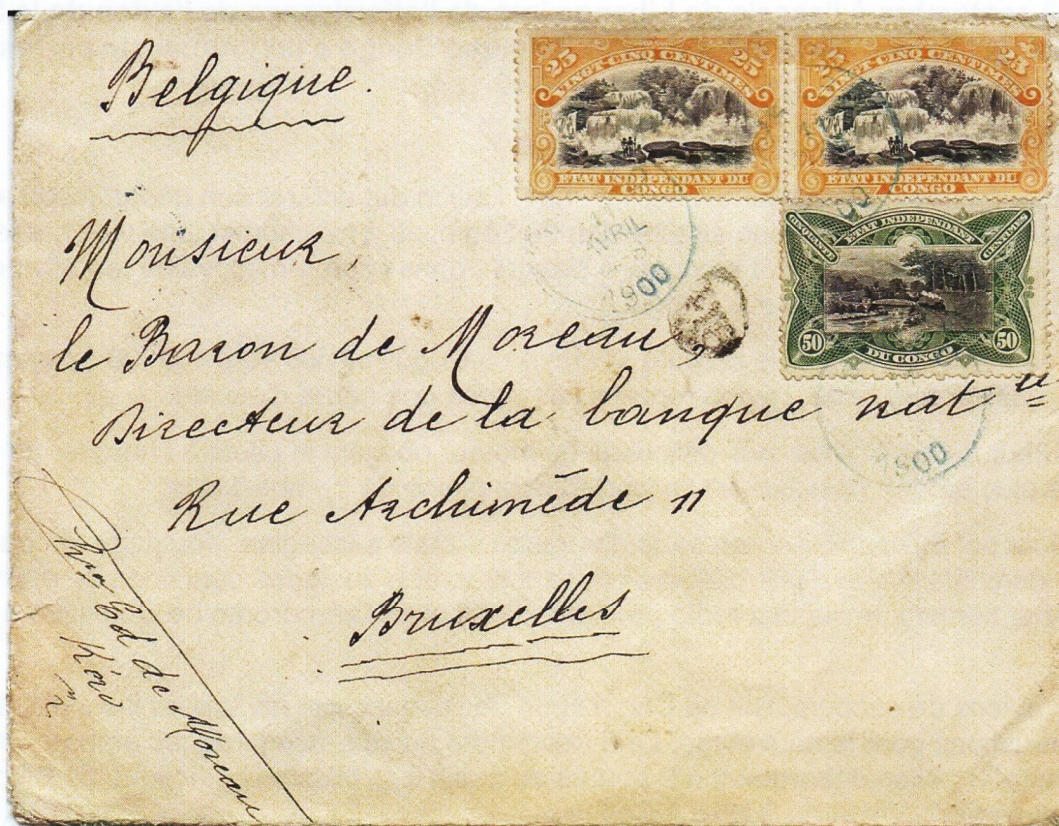 Belgique.
25 25
VINGT-CINQ CENTIMES
ETAT INDEPENDANT DU
CONGO
25 25
VINGT-CINQ CENTIMES
ETAT INDEPENDANT DU
CONGO
CINQUANTE ETAT INDEPENDANT CENTIMES
50 DU CONGO 50
AVRIL
1900
1900
Monsieur,
le Baron de Moreau,
Directeur de la banque nat le
Rue Archimède 11
Bruxelles
Ed de Moreau